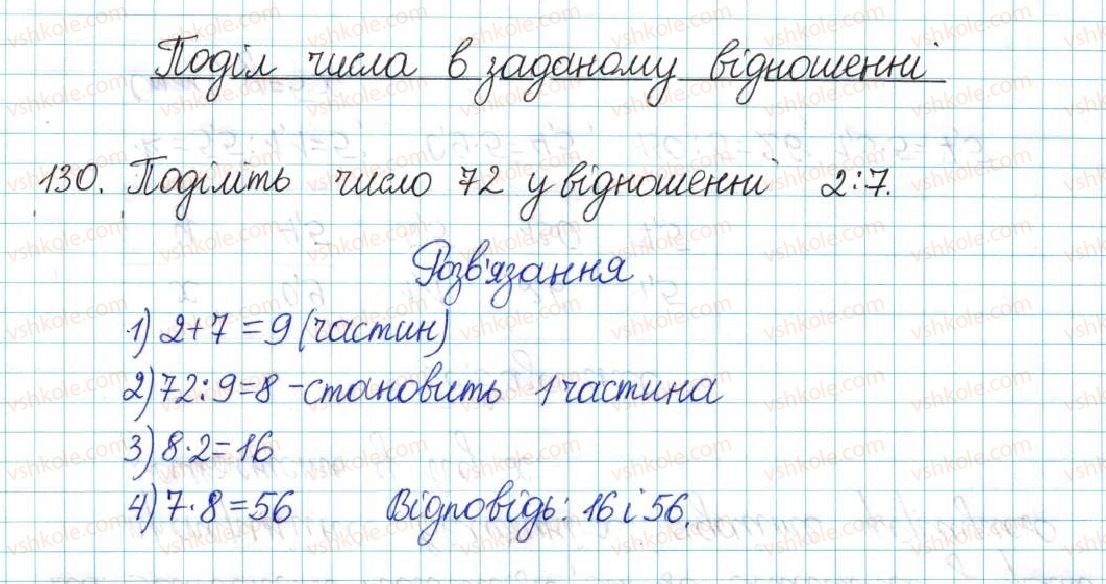 Поділ числа в заданому відношенні
130. Поділіть число 72 у відношенні 2:7.
Розв'язання
1) 2+7=9 (частин)
2) 72:9=8 - становить 1 частина
3) 8·2=16
4) 7·8=56 Відповідь: 16 і 56.